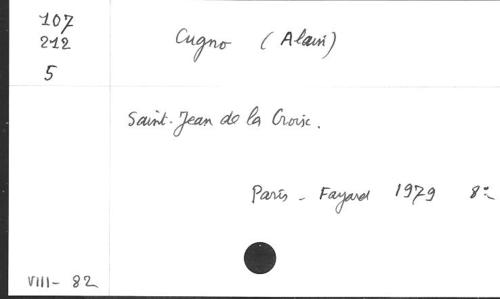 107
212
5
Cugno (Alain)
Saint-Jean de la Croix.
Paris - Fayard 1979 8º
VIII - 82